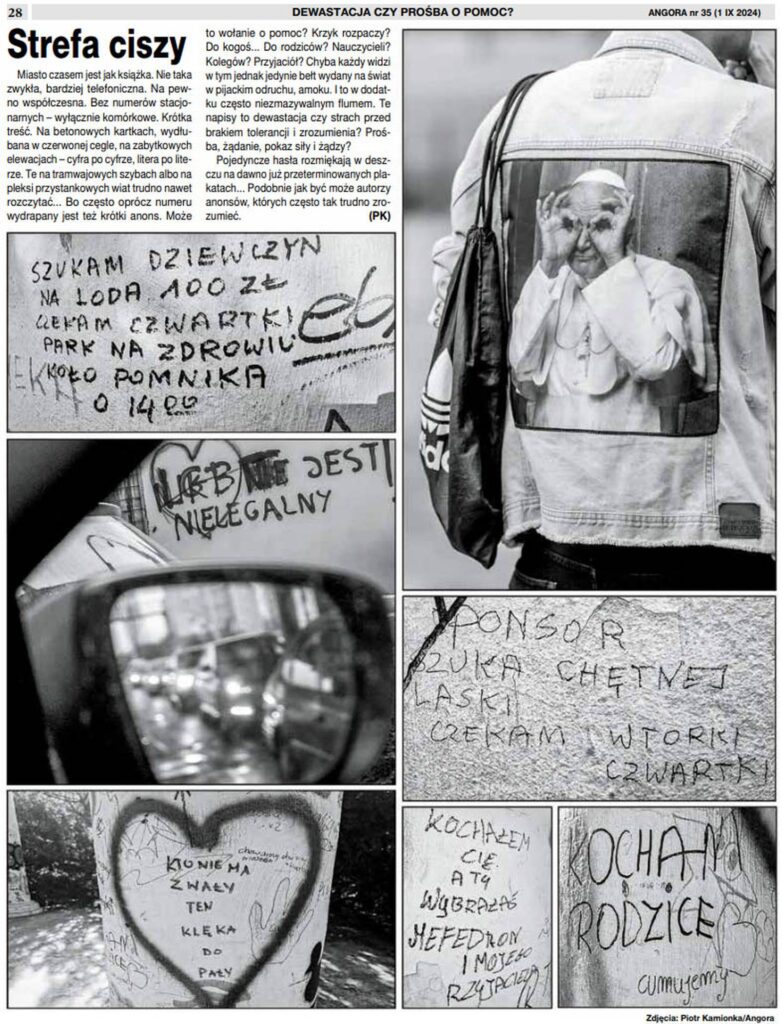 28
DEWASTACJA CZY PROŚBA O POMOC?
ANGORA nr 35 (1 IX 2024)
Strefa ciszy
Miasto czasem jest jak książka. Nie taka
zwykła, bardziej telefoniczna. Na pew-
no współczesna. Bez numerów stacjo-
narnych – wyłącznie komórkowe. Krótka
treść. Na betonowych kartkach, wydłu-
bana w czerwonej cegle, na zabytkowych
elewacjach – cyfra po cyfrze, litera po lite-
rze. Te na tramwajowych szybach albo na
pleksi przystankowych wiat trudno nawet
rozczytać... Bo często oprócz numeru
wydrapany jest też krótki anons. Może
to wołanie o pomoc? Krzyk rozpaczy?
Do kogoś... Do rodziców? Nauczycieli?
Kolegów? Przyjaciół? Chyba każdy widzi
w tym jednak jedynie bełt wydany na świat
w pijackim odruchu, amoku. I to w dodat-
ku często niezmazywalnym flumem. Te
napisy to dewastacja czy strach przed
brakiem tolerancji i zrozumienia? Proś-
ba, żądanie, pokaz siły i żądzy?
Pojedyncze hasła rozmiękają w desz-
czu na dawno już przeterminowanych pla-
katach... Podobnie jak być może autorzy
anonsów, których często tak trudno zro-
zumieć.
(PK)
SZUKAM DZIEWCZYN
NA LODA 100 ZŁ
CZEKAM CZWARTKI
PARK NA ZDROWIU
KOŁO POMNIKA
O 14 00
JEST!
NIELEGALNY
SPONSOR
SZUKA CHĘTNEJ
LASKI
CZEKAM WTORKI
CZWARTKI
KTO NIE MA
ZWAŁY
TEN
KLĘKA
DO
PAŁY
KOCHAŁEM
CIĘ
A TY
WYBRAŁAŚ
MEFEDRON
I MOJEGO
PRZYJACIELA
KOCHAM
RODZICE
cumujemy
Zdjęcia: Piotr Kamionka/Angora